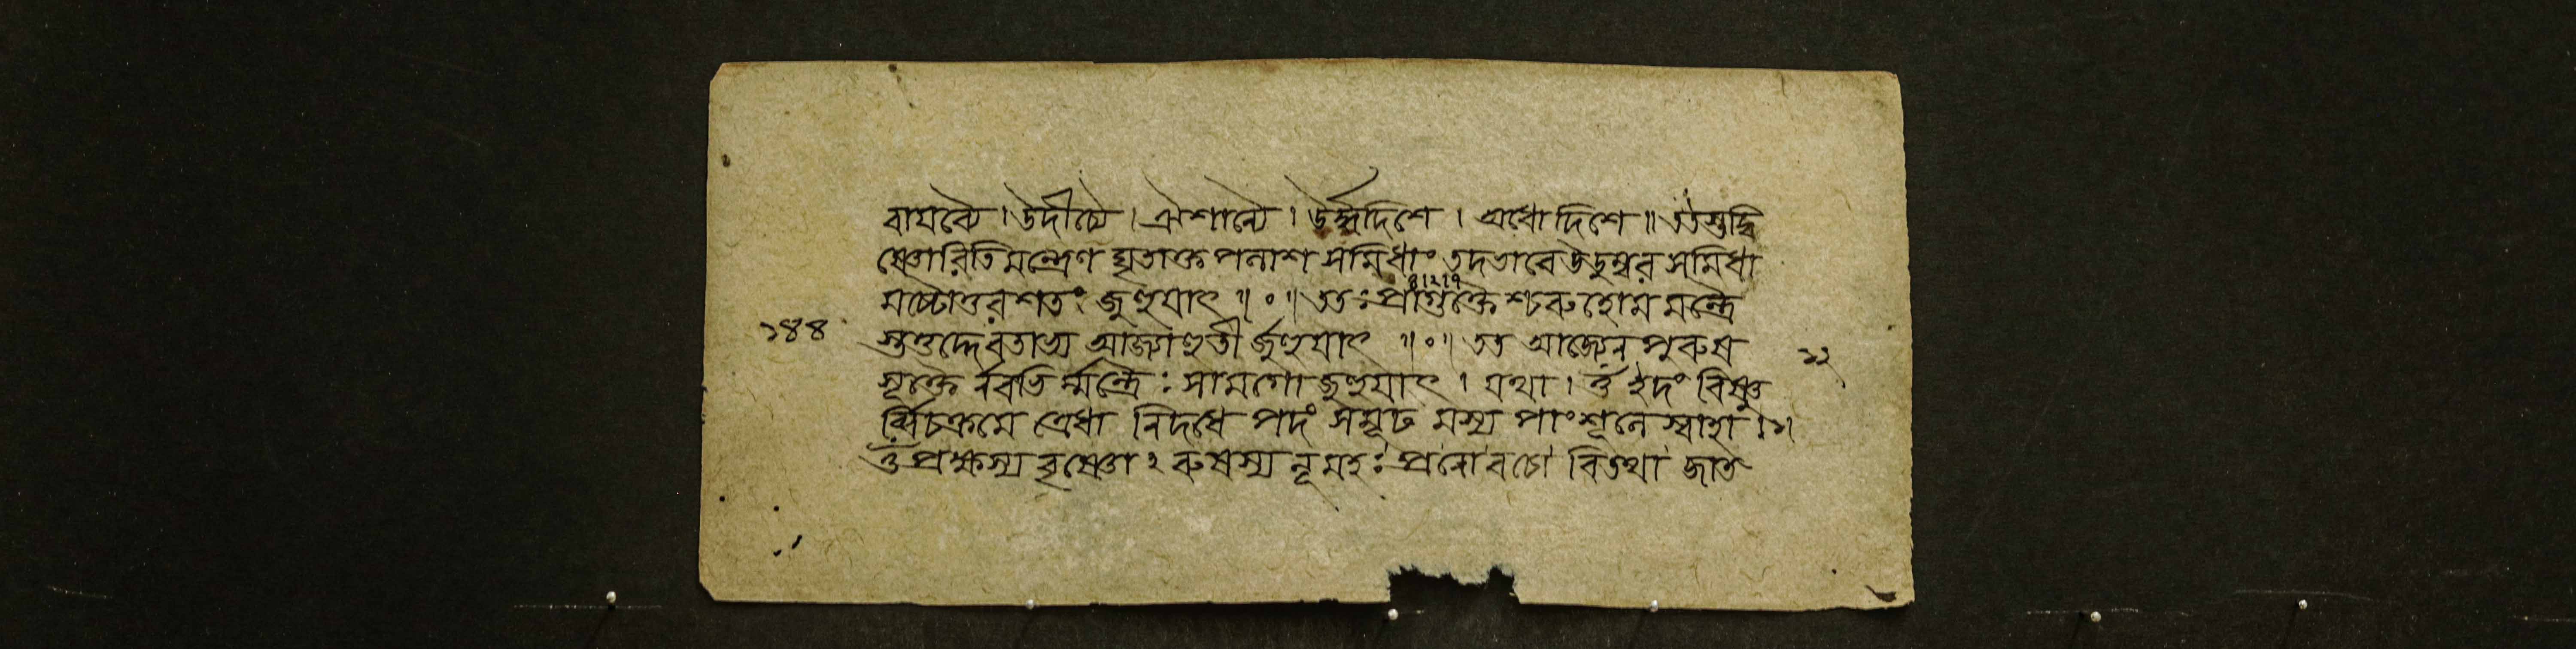 বায়ব্যৈ । উদীচ্যৈ । ঐশান্যৈ । ঊর্দ্ধদিশে । অধোদিশে ॥ ততস্তদ্বি
ষ্ণোরিতিমন্ত্রেণ ঘৃতাক্ত পলাশ সমিধাং তদভাবে উডুম্বর সমিধা
মষ্টোত্তর শতং জুহুয়াৎ ॥ ० ॥ ততঃ প্রাগুক্তৈ শ্চরুহোম মন্ত্রৈ
১৪৪ স্তত্তদ্দেবতাভ্য আজ্যাহুতী র্জুহুয়াৎ ॥ ० ॥ তত আজ্যেন পুরুষ ১২
সূক্তৈ র্নবতি র্ম্মন্ত্রৈঃ সামগো জুহুয়াৎ । যথা । ওঁ ইদং বিষ্ণু
র্ব্বিচক্রমে ত্রেধা নিদধে পদং সমূঢ মস্য পাংশূলে স্বাহা ।১।
ওঁ প্রক্ষস্য বৃষ্ণো ২ রুষস্য নূ মহঃ প্রনো বচো বিতথা জাত